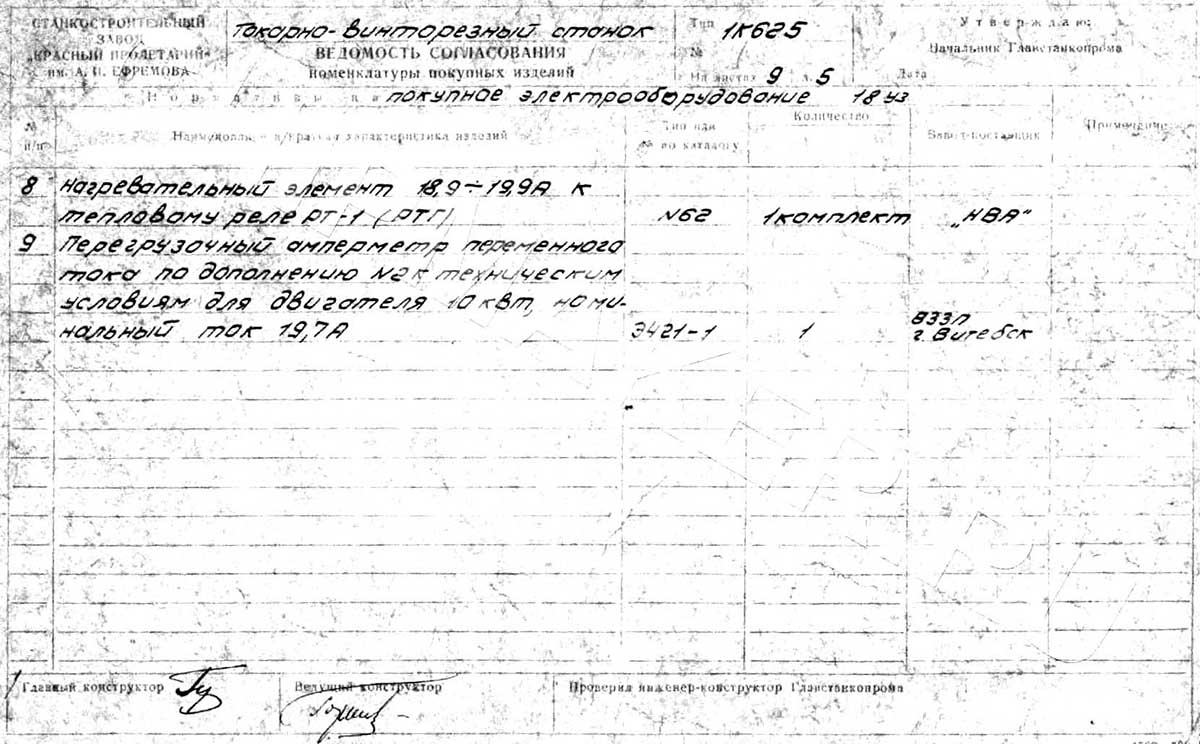 СТАНКОСТРОИТЕЛЬНЫЙ
ЗАВОД
„КРАСНЫЙ ПРОЛЕТАРИЙ"
им. А. И. ЕФРЕМОВА
Токарно-винторезный станок
ВЕДОМОСТЬ СОГЛАСОВАНИЯ
номенклатуры покупных изделий
Тип 1К625
№
На листах 9 л. 5
Утверждаю:
Начальник Главстанкопрома
Дата
покупное электрооборудование 18 уз
№ п/п
Наименование и краткая характеристика изделий
Тип или № по каталогу
Количество
Завод-поставщик
Примечание
8 Нагревательный элемент 18,9÷19,9А к
тепловому реле РТ-1 (РТГ) №62 1 комплект „НВА"
9 Перегрузочный амперметр переменного
тока по дополнению №2 к техническим
условиям для двигателя 10 квт, номи-
нальный ток 19,7А Э421-1 1 ВЗЭП г. Витебск
Главный конструктор
Ведущий конструктор
Проверил инженер-конструктор Главстанкопрома